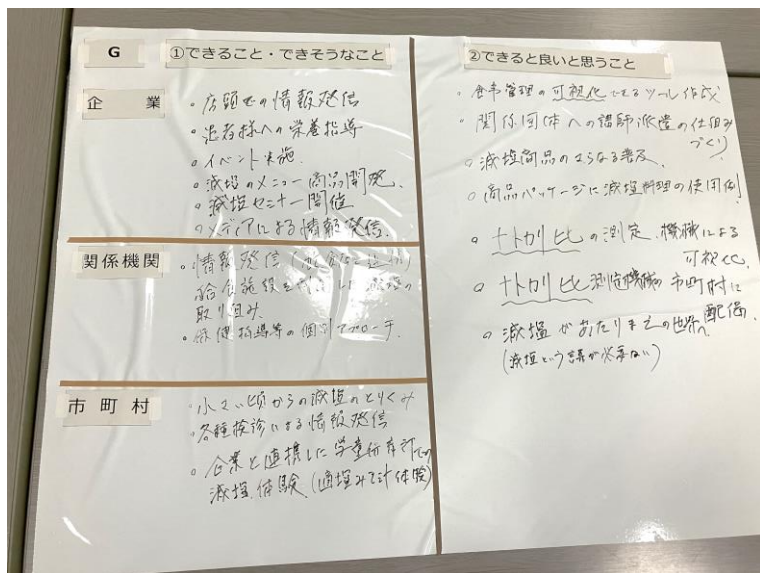 G
①できること・できそうなこと
企業
。店頭での情報発信
。患者様への栄養指導
。イベント実施.
。減塩のメニュー商品開発.
。減塩セミナー開催
。メディアによる情報発信.
関係機関
。情報発信
給食施設を
取り組み.
。保健指導等の個別アプローチ
市町村
・小さい頃からの減塩のとりくみ
・各種検診による情報発信
。企業と連携した学童保育での
減塩体験(適塩みそ汁体験)
②できると良いと思うこと
。食事管理の可視化できるツール作成
。関係団体への講師派遣の仕組み
づくり
。減塩商品のさらなる普及.
。商品パッケージに減塩料理の使用例
。ナトカリ比の測定.機械による
可視化.
。ナトカリ比測定機械の市町村に
配備.
。減塩があたりまえの世界へ
(減塩という言葉が必要ない)